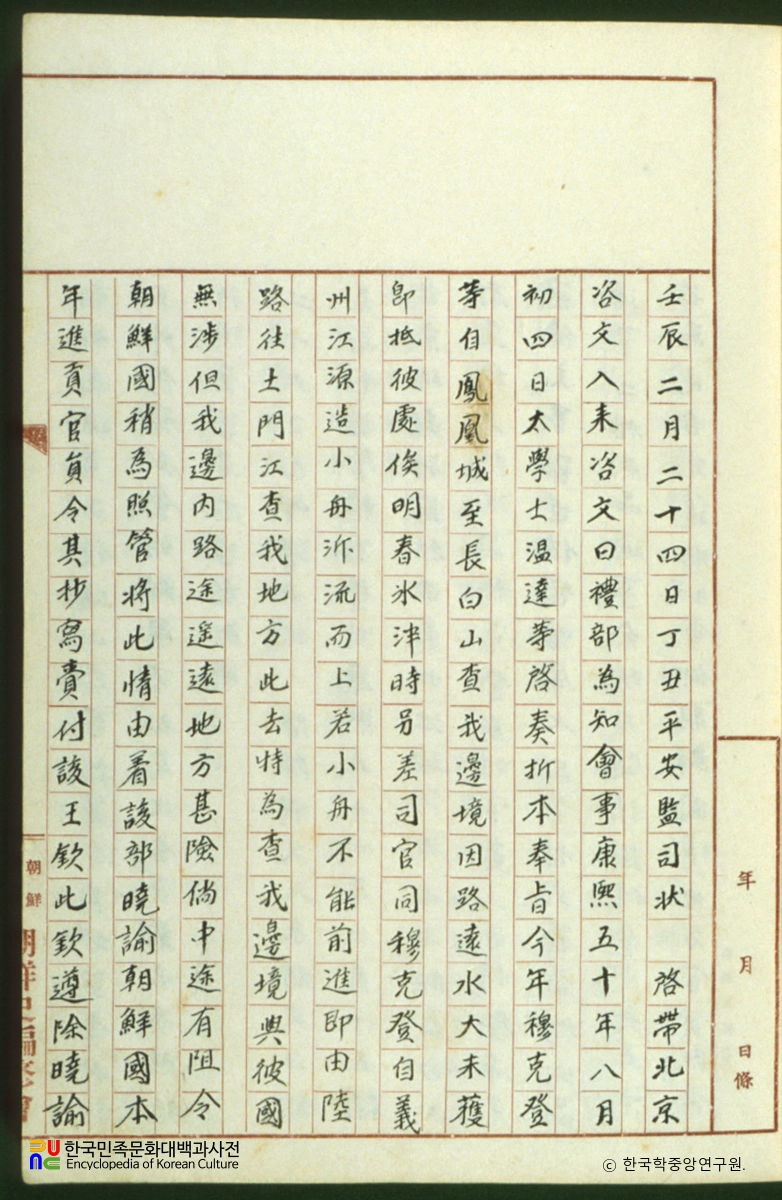 壬辰二月二十四日丁丑平安監司狀　啓帶北京
咨文入来咨文曰禮部為知會事康熙五十年八月
初四日太學士温達等啓奏折本奉旨今年穆克登
等自鳳凰城至長白山查我邊境因路遠水大未獲
即抵彼處俟明春氷泮時另差司官同穆克登自義
州江源造小舟泝流而上若小舟不能前進即由陸
路往土門江查我地方此去特為查我邊境與彼國
無涉但我邊内路途遥遠地方甚險倘中途有阻令
朝鮮國稍為照管將此情由着該部曉諭朝鮮國本
年進貢官員令其抄寫賫付該王欽此欽遵除曉諭
年 月 日條
朝鮮
朝鮮史編修會
한국민족문화대백과사전
Encyclopedia of Korean Culture
© 한국학중앙연구원.